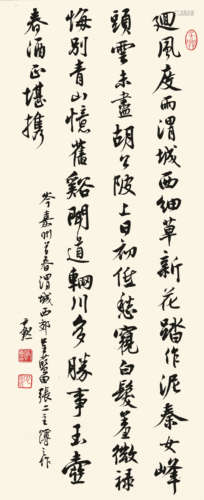 迴風度雨渭城西細草新花踏作泥秦女峰
頭雪未盡胡公陂上日初低愁窺白髮羞微祿
悔別青山憶舊谿聞道輞川多勝事玉壺
春酒正堪攜
岑嘉州首春渭城西郊呈藍田張二主簿之作
尹默